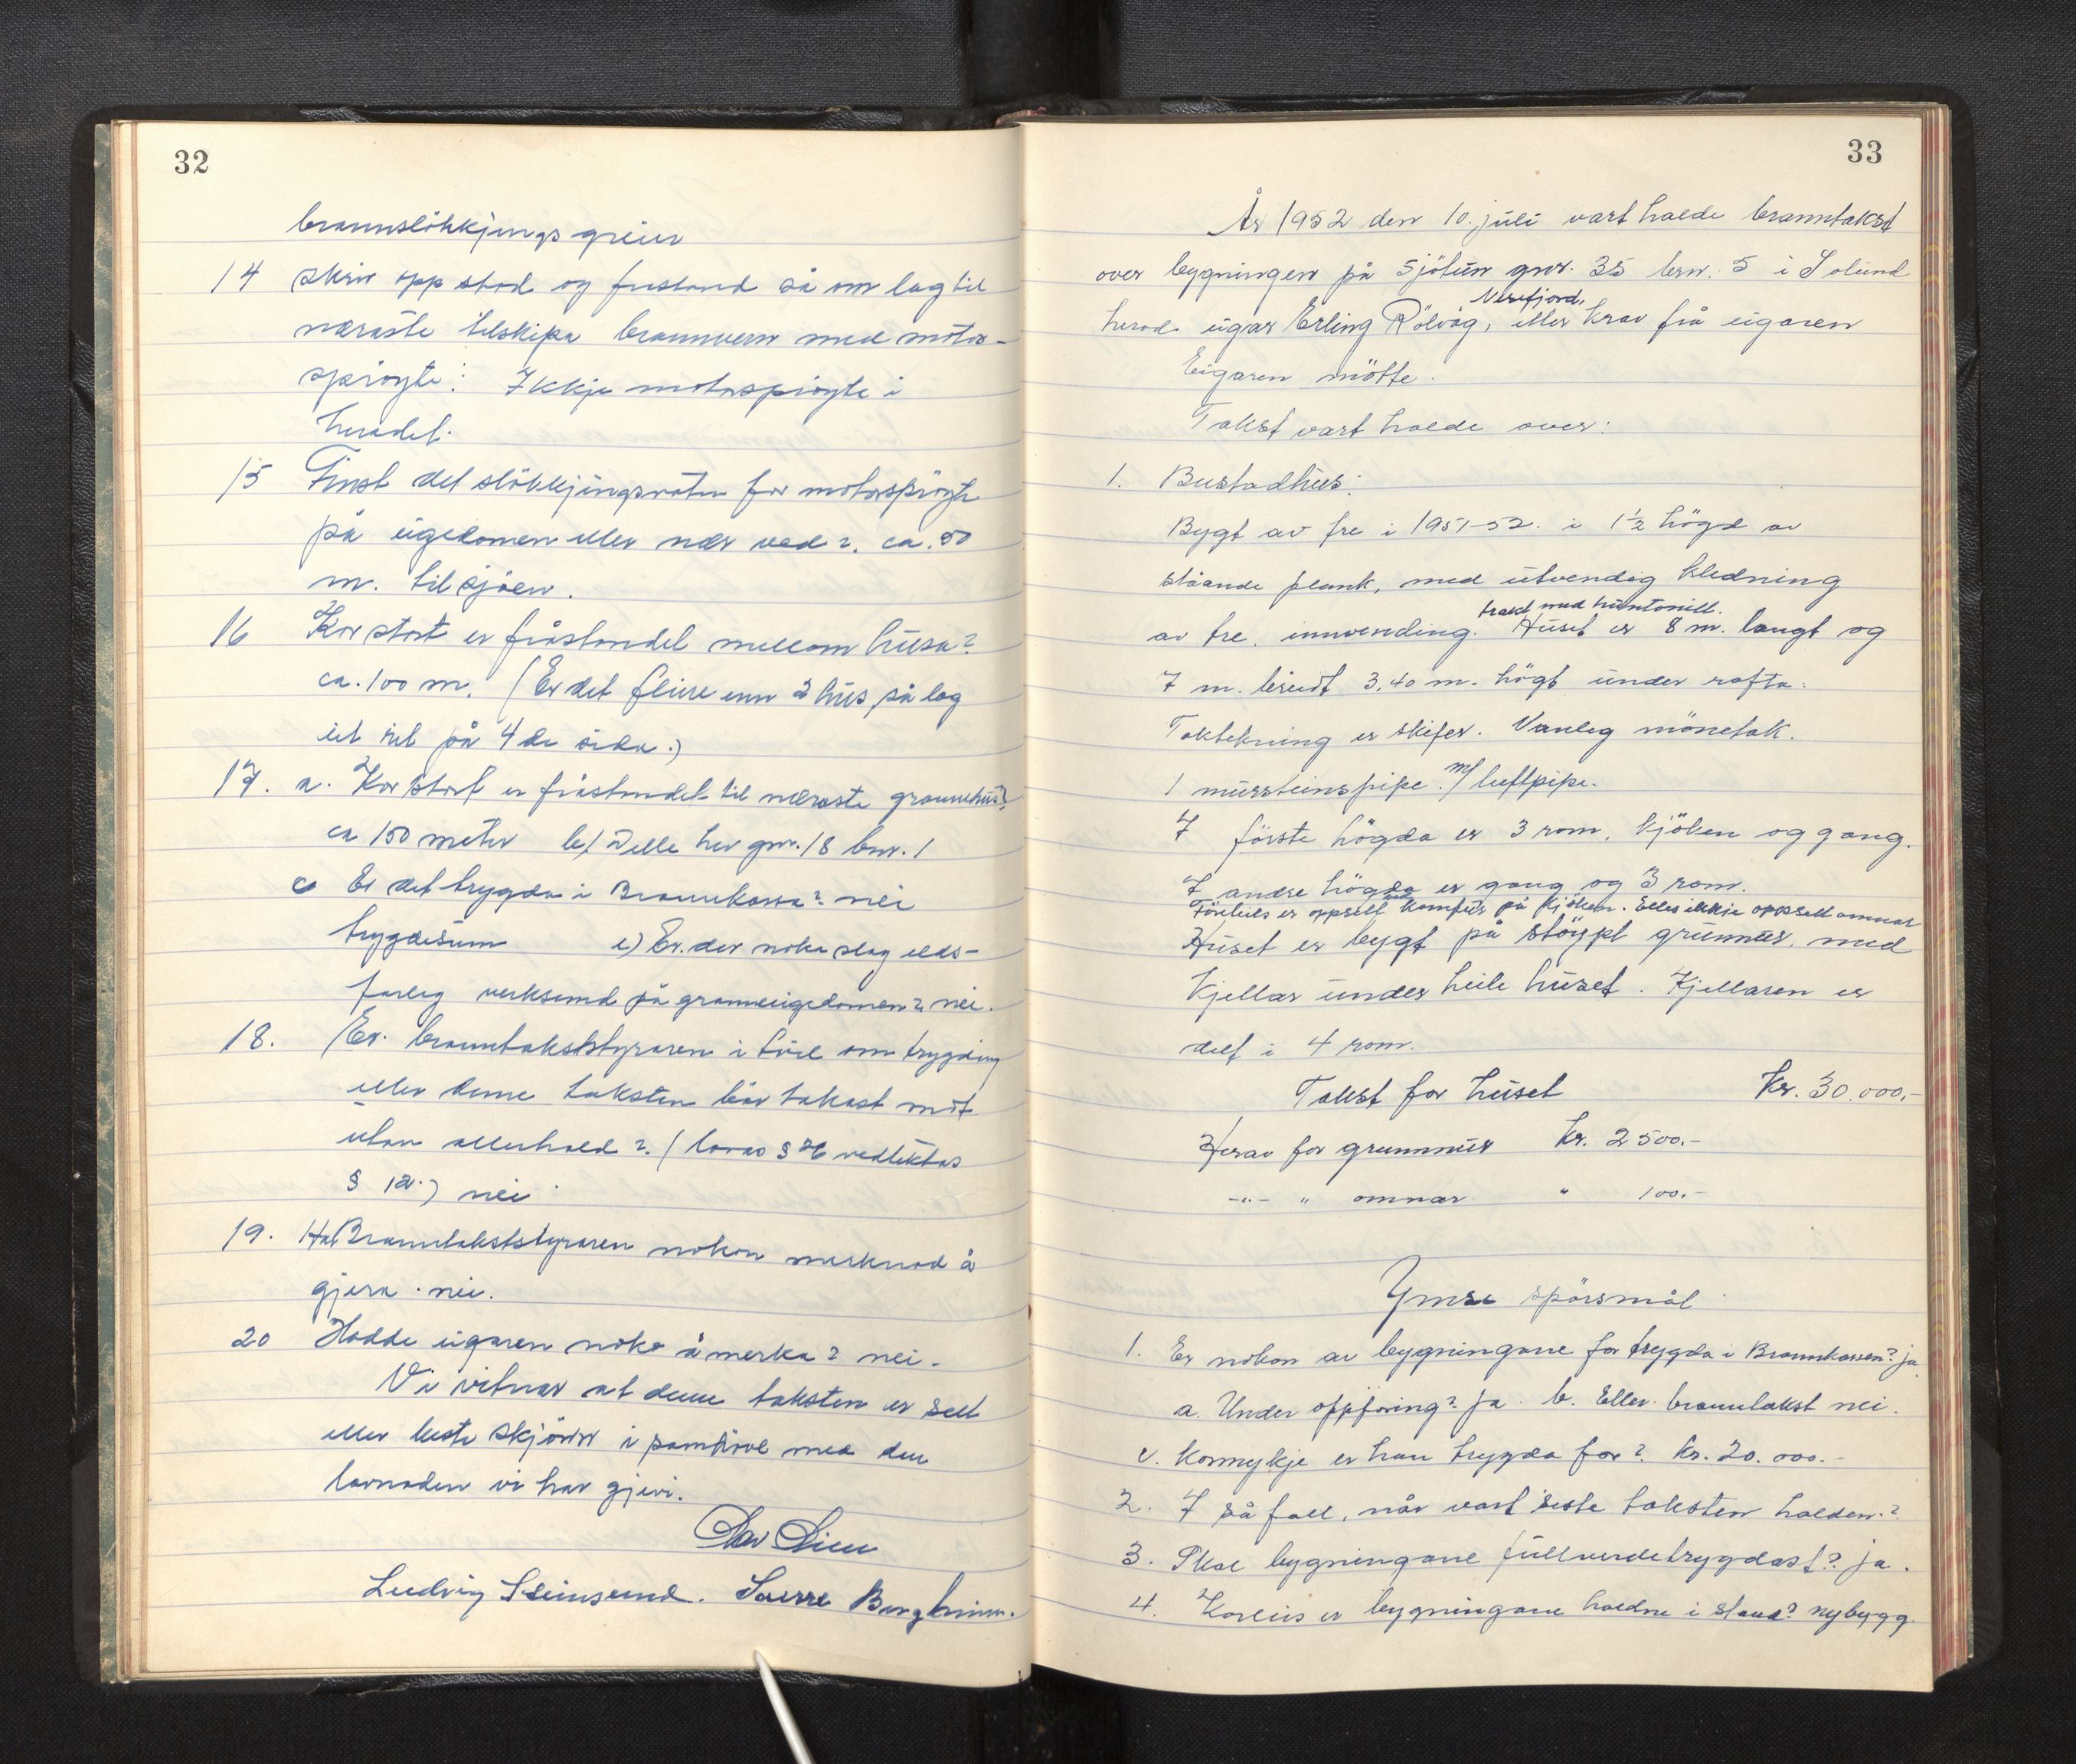 32
brannslökkjings greier
14 Skriv opp stad og frestand så om lag til
næraste tilskipa brannvern med motor-
spröyte: Ikkje motorspröyte i
heradet.
15 Finst det slökkjingsvatn for motorspröyte
på eigedomen eller nær ved?. ca. 50
m. til sjöen.
16 Kor stort er fråstandet millom husa?
ca. 100 m. (Er det fleire enn 2 hus, så lag
eit rit på 4de sida.)
17. a. Kor stort er fråstandet til næraste grannehus?
ca 150 meter b) Dette her gnr. 18 bnr. 1
c Er det trygda i Brannkassa? nei
trygdesum e) Er der noko slag elds-
farleg verksemd på granneeigedomen? nei.
18. Er branntakststyraren i tvil om trygding
etter denne taksten bör takast mot
utan atterhald?. (lovas § 26 vedtektas
§ 12.) nei
19. Har Branntakststyraren nokon merknad å
gjera. nei.
20 Hadde eigaren noko å merka? nei.
Vi vitnar at denne taksten er sett
etter beste skjönn i samhöve med den
lovnaden vi har gjevi.
Ludvig Steinsund. Sverre Bergheim.
33
År 1952 den 10. juli vart halde branntakst
over bygningen på Sjötun gnr. 35 brn. 5 i Solund
Nesefjord,
herad eigar Erling Rölvåg, etter krav frå eigaren
Eigaren mötte.
Takst vart halde over:
1. Bustadhus:
Bygt av tre i 1951-52. i 1½ högd av
ståande plank, med utvendig kledning
trekt med huntonitt.
av tre. innvending. Huset er 8 m. langt og
7 m. breidt 3,40 m. högt under rafta.
Taktekning er skifer. Vanleg mönetak.
1 mursteinspipe. m/ luftpipe.
I förste högda er 3 rom, kjöken og gang.
I andre högda er gang og 3 rom.
Föreleis er oppsett komfur på kjöken. Elles ikkje oppsett omnar
Huset er bygt på stöypt grunnur, med
kjellar under heile huset. Kjellaren er
delt i 4 rom.
Takst for huset Kr. 30.000,-
Herav for grunnmur kr. 2500.-
-"- " omnar " 100.-
Ymse spörsmål
1. Er nokon av bygningane för trygda i Brannkassen? ja
a. Under oppföring? ja. b. Etter branntakst nei.
c. Kormykje er han trygda for? kr. 20.000.-
2. I så fall, når vart siste taksten halden?
3. Skal bygningane fullverdetrygdast? ja.
4. Korleis er bygningane haldne i stand? nybygg.